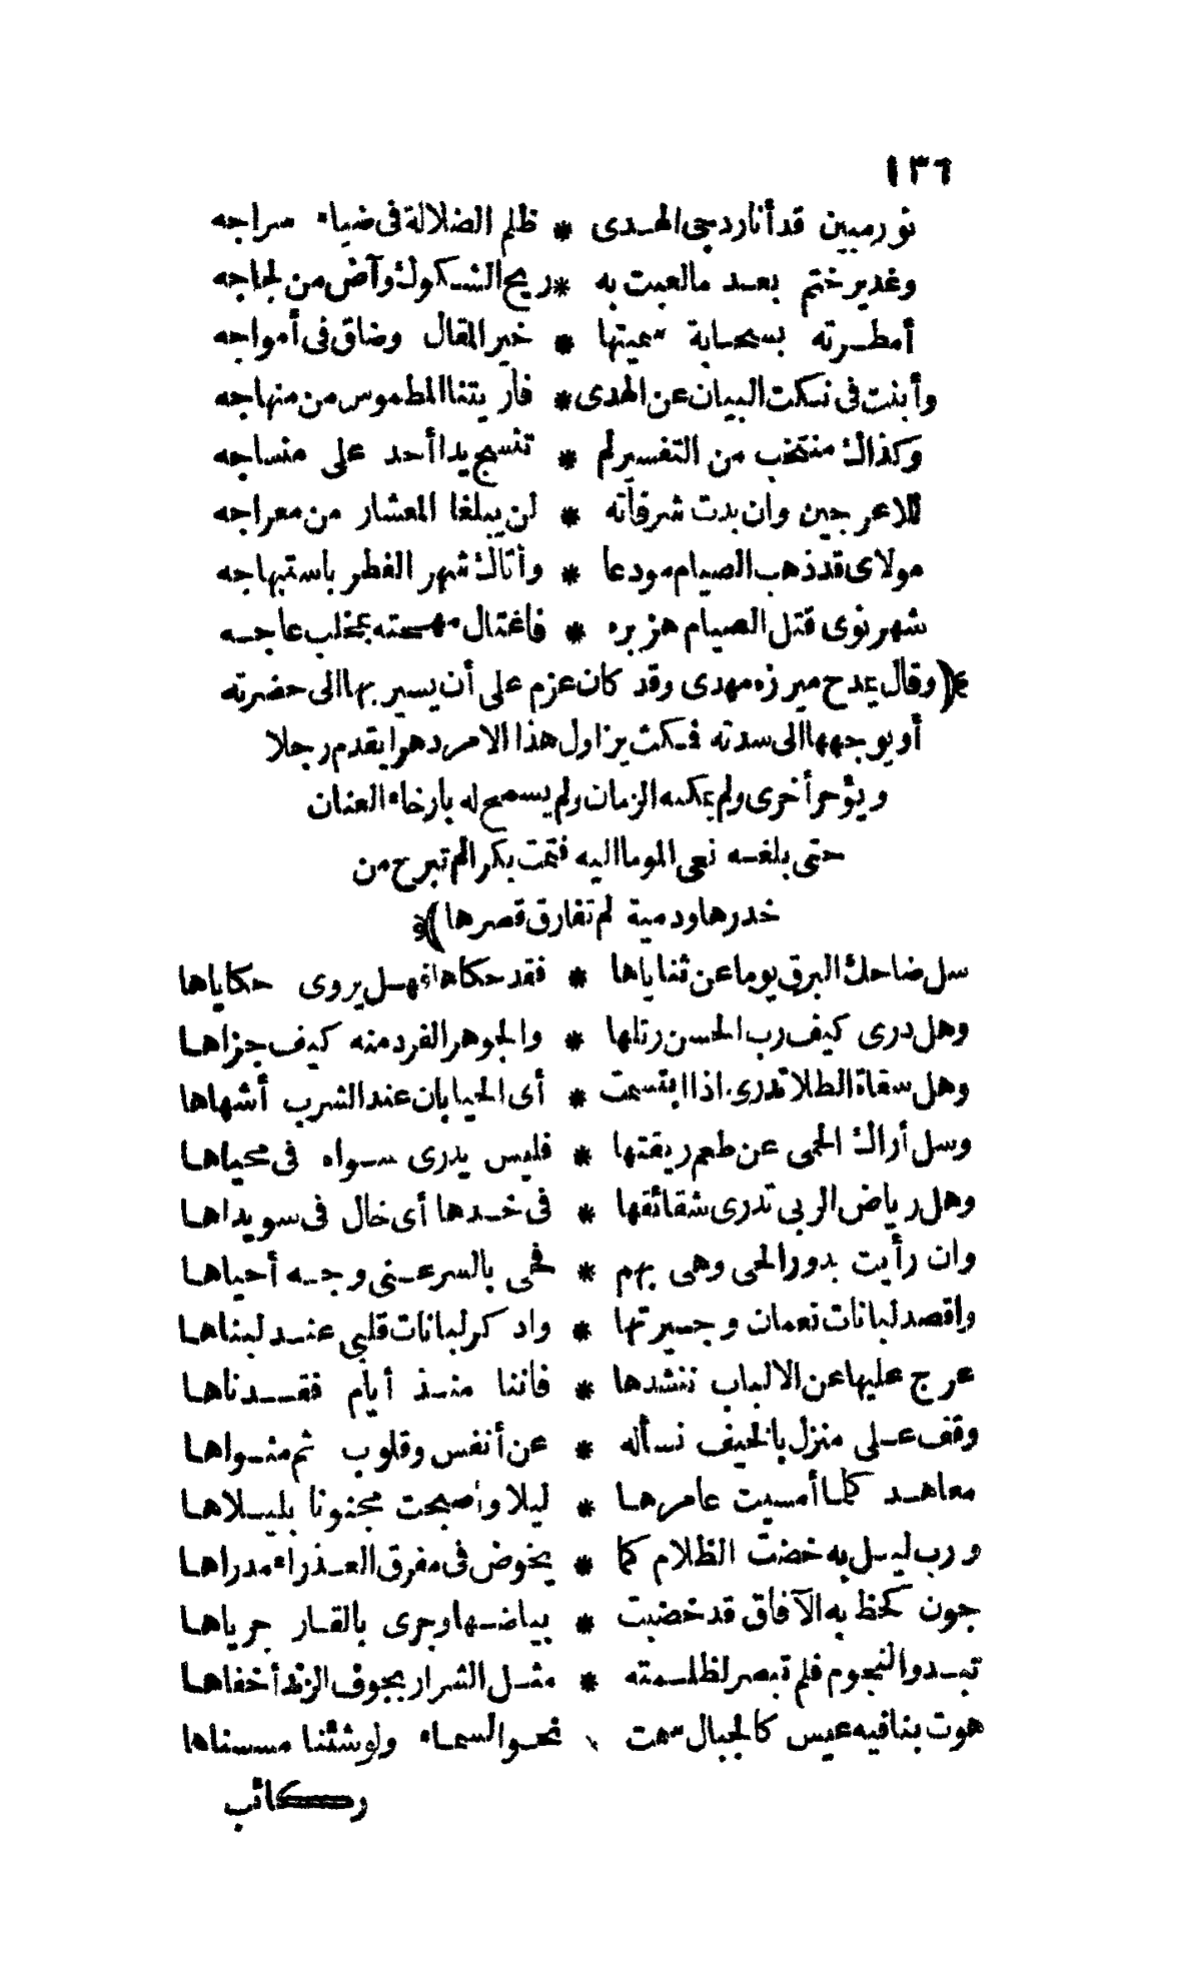 ١٣٦
نور مبين قد أنار دجى الهدى * ظلم الضلالة فى ضياء سراجه
وغدير ختم بعد مالعبت به * ريح الشكوك وآض من لجاجه
أمطرته بسحابة سميتها * خير المقال وضاق فى أمواجه
وأبنت فى نكت البيان عن الهدى * فأريتنا المطموس من منهاجه
وكذاك منتخب من التفسير لم * تنسج يدا أحد على منساجه
للاعرجين وان بدت شرفاته * لن يبلغا المعشار من معراجه
مولاى قد ذهب الصيام مودعا * وأتاك شهر الفطر باستبهاجه
شهر نوى قتل الصيام هزبره * فاغتال مهجته بمخلب عاجه
﴿وقال يمدح ميرزه مهدى وقد كان عزم على أن يسير بها الى حضرته
أو يوجهها الى سدته فمكث يزاول هذا الامر دهرا يقدم رجلا
ويؤخر أخرى ولم يمكنه الزمان ولم يسمح له بارخاء العنان
حتى بلغه نعى الموما اليه فتمت بكرا لم تبرح من
خدرها ودمية لم تفارق قصرها﴾
سل ضاحك البرق يوما عن ثناياها * فقد حكاها فهل يروى حكاياها
وهل درى كيف رب الحسن رتلها * والجوهر الفرد منه كيف جزاها
وهل سقاة الطلا تدرى اذا ابتسمت * أى الحيا بان عند الشرب أشهاها
وسل أراك الحمى عن طعم ريقتها * فليس يدرى سواه فى محياها
وهل رياض الربى تدرى شقائقها * فى خدها أى خال فى سويداها
وان رأيت بدور الحى وهى بهم * فحى بالسر عنى وجه أحياها
واقصد لبانات نعمان وجيرتها * واذكر لبانات قلبى عند لبناها
عرج عليها عن الالباب ننشدها * فاننا منذ أيام فقدناها
وقف على منزل بالخيف نسأله * عن أنفس وقلوب ثم مثواها
معاهد كلما أمسيت عامرها * ليلا وأصبحت مجنونا بليلاها
ورب ليل به خضت الظلام كما * يخوض فى مفرق العذراء مدراها
جون كحظ به الآفاق قد خضبت * بياضها وجرى بالقار جرياها
تبدو النجوم فلم تبصر لظلمته * مثل الشرار بجوف الزند أخفاها
هوت بنا فيه عيس كالجبال سمت * نحو السماء ولو شئنا مسسناها
وركائب